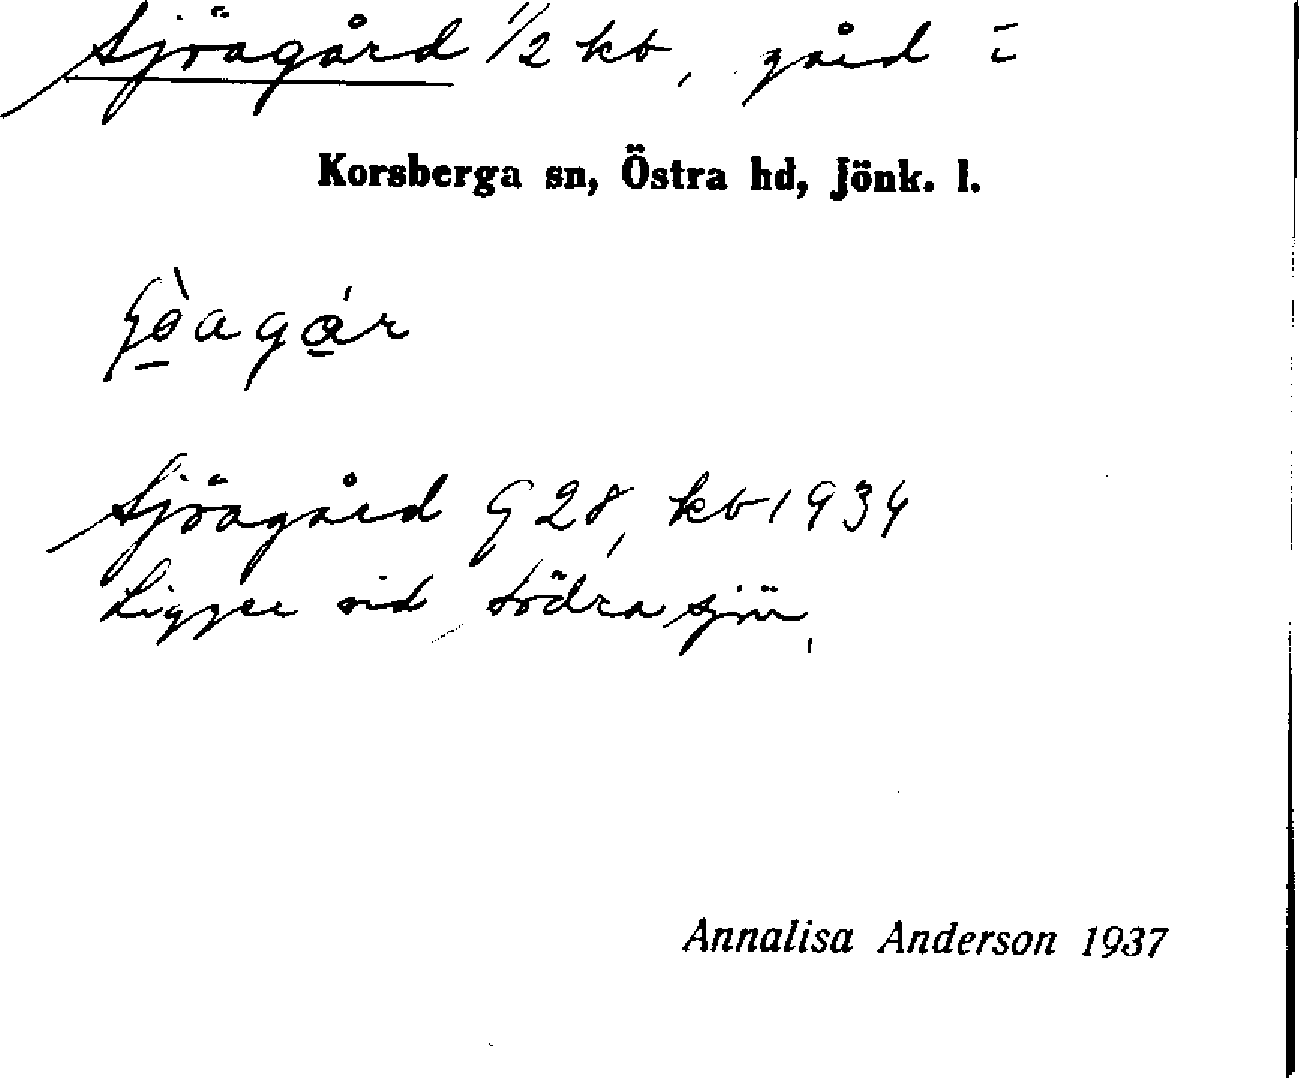 Sjöagård 1/2 kb, gård i
Korsberga sn, Östra hd, Jönk. l.
Sjöagård G 28, kb 1934
Ligger vid Södra sjön,
Annalisa Anderson 1937